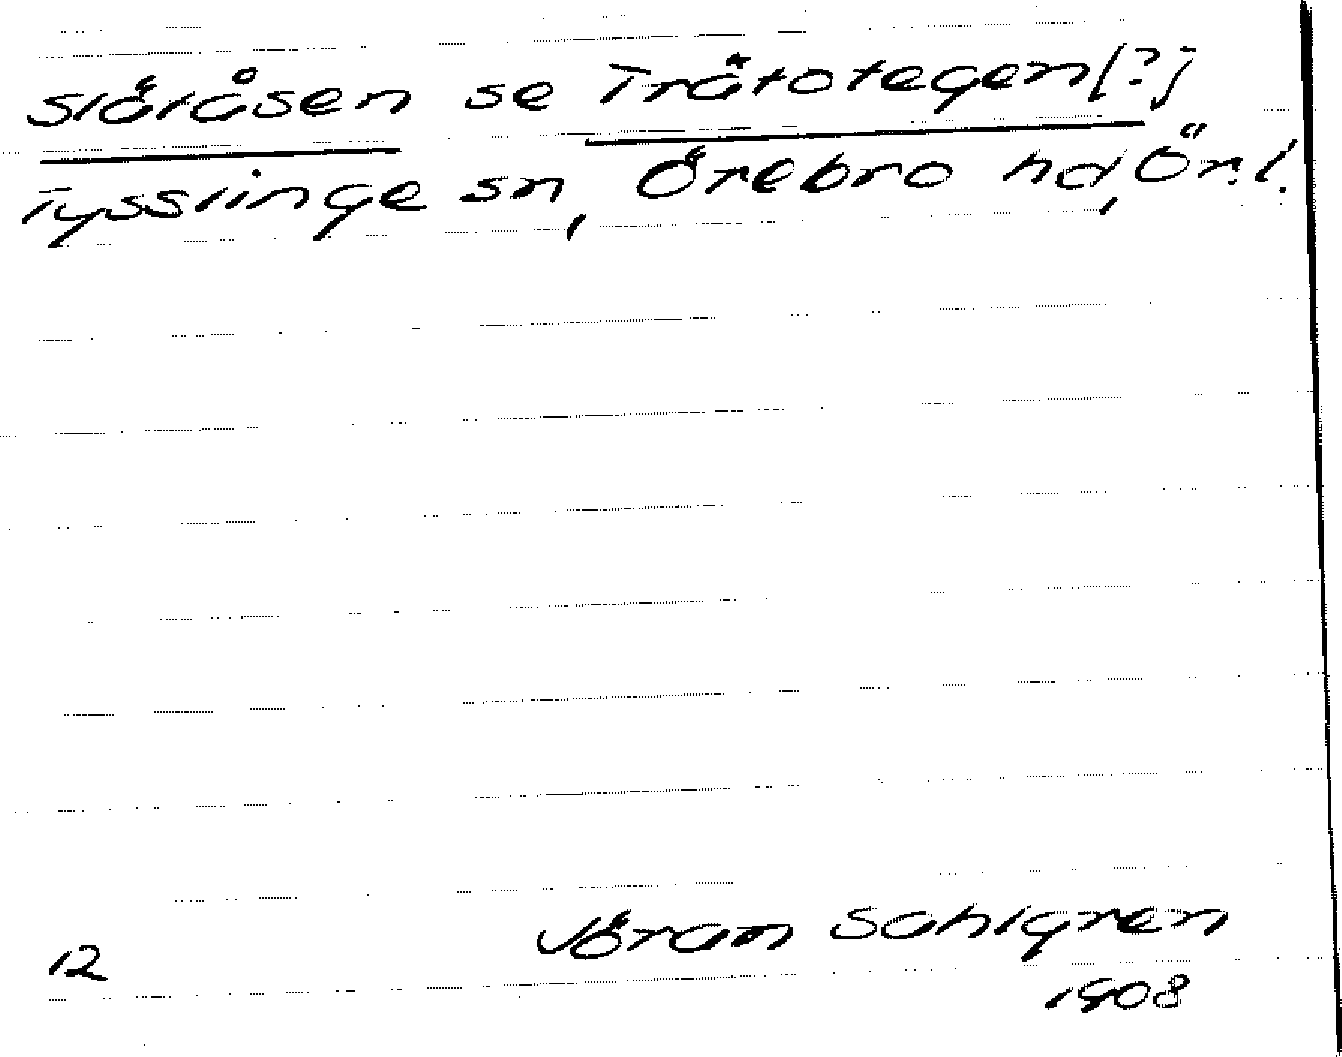 Slätåsen se Trätotegen[?]
Tysslinge sn, Örebro hd, Ör.l.
Jöran Sahlgren
12
1908